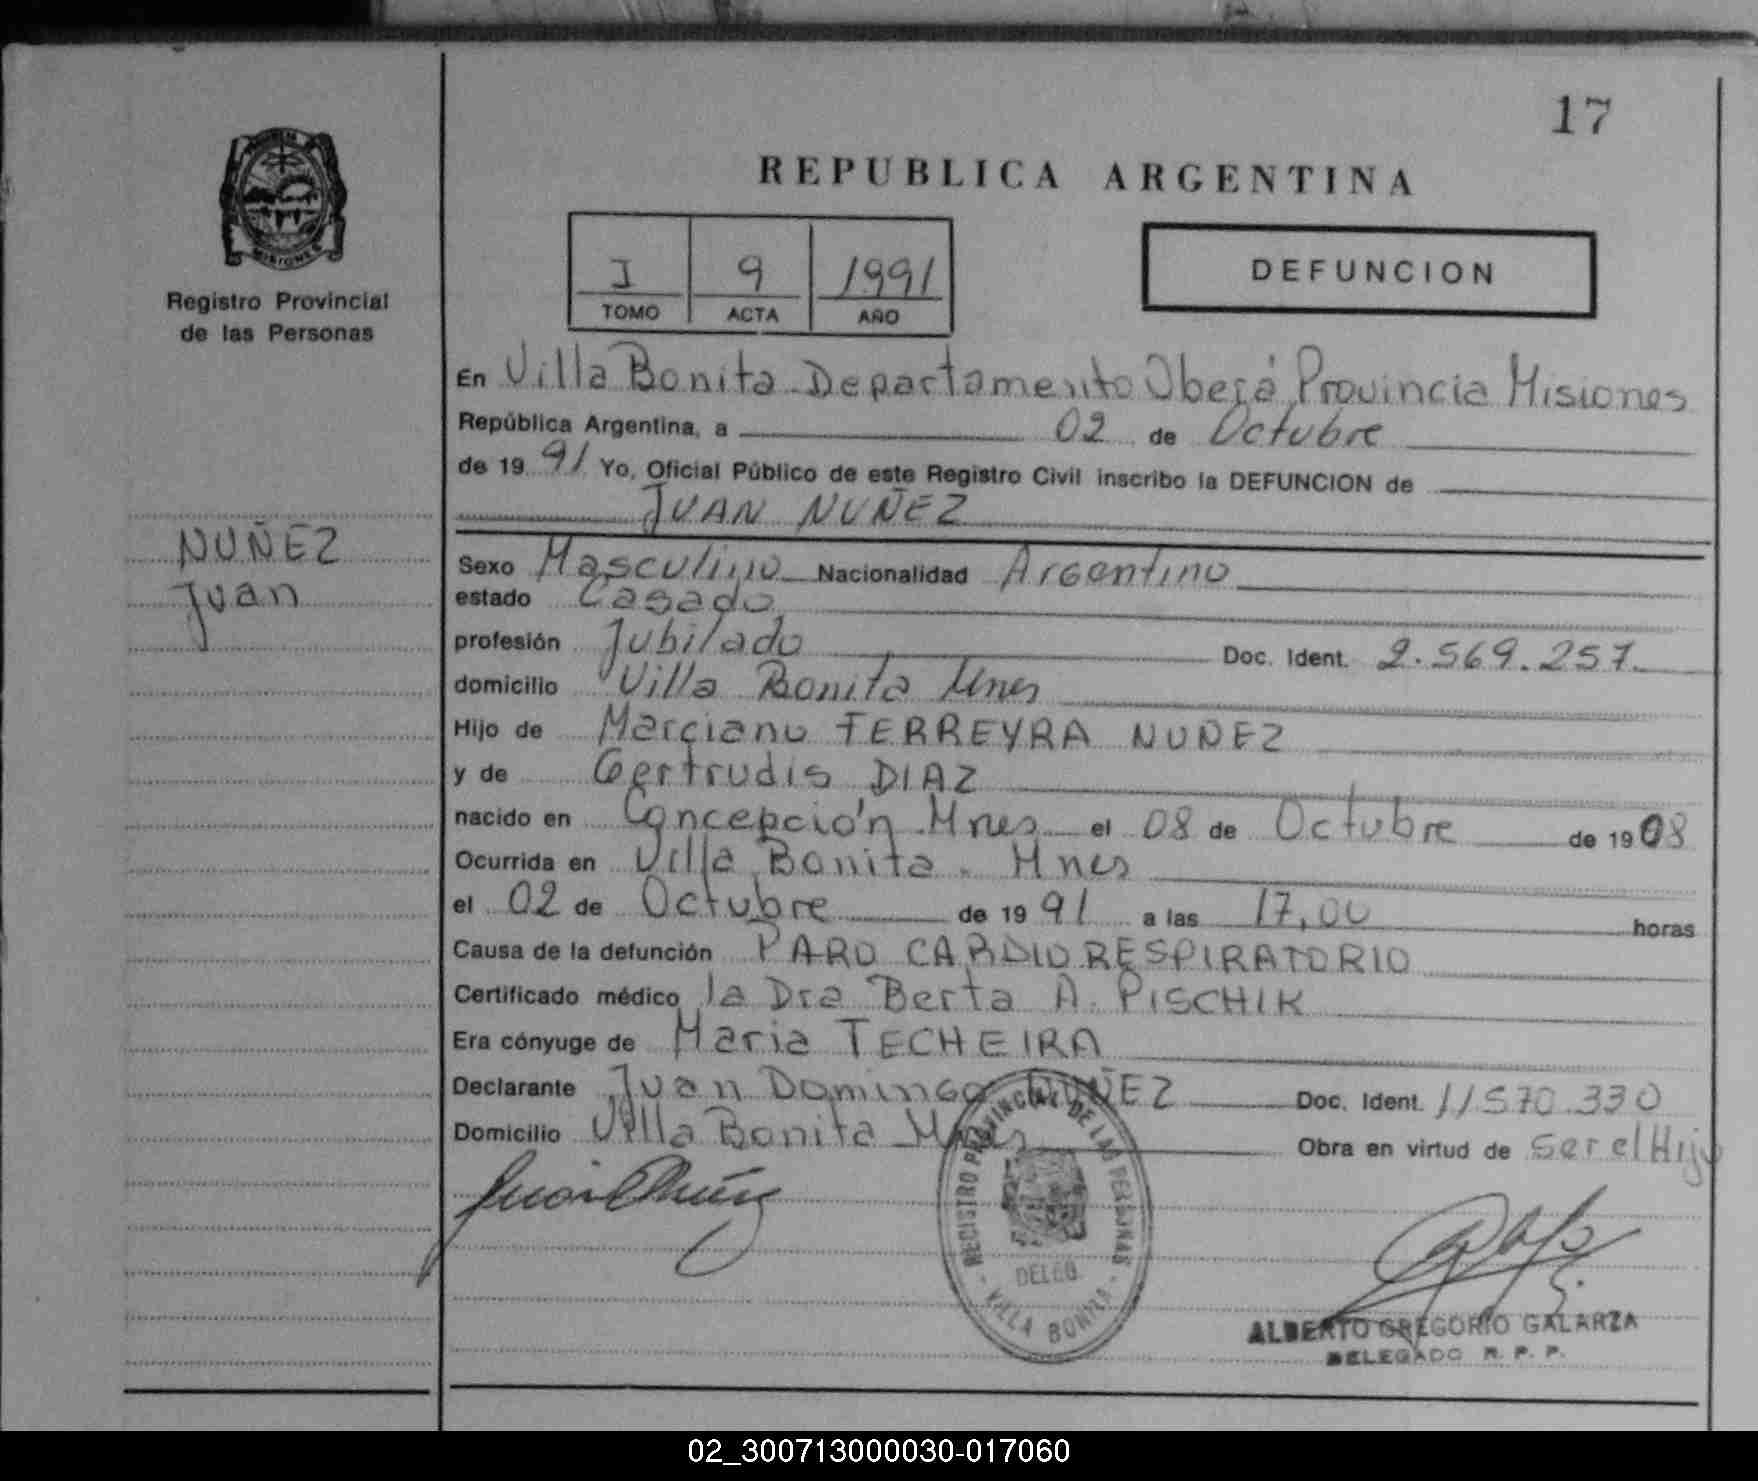 17
REPUBLICA ARGENTINA
MISIONES
Registro Provincial
de las Personas
I 9 1991
TOMO ACTA AÑO
DEFUNCION
En Villa Bonita Departamento Oberá Provincia Misiones
República Argentina, a 02 de Octubre
de 19 91 Yo, Oficial Público de este Registro Civil inscribo la DEFUNCION de
JUAN NUÑEZ
NUÑEZ
Juan
Sexo Masculino Nacionalidad Argentino
estado Casado
profesión Jubilado Doc. Ident. 2.569.257.
domicilio Villa Bonita Mnes
Hijo de Marciano FERREYRA NUÑEZ
y de Gertrudis DIAZ
nacido en Concepción Mnes el 08 de Octubre de 19 08
Ocurrida en Villa Bonita. Mnes
el 02 de Octubre de 19 91 a las 17,00 horas
Causa de la defunción PARO CARDIORESPIRATORIO
Certificado médico la Dra Berta A. PISCHIK
Era cónyuge de Maria TECHEIRA
Declarante Juan Domingo NUÑEZ Doc. Ident. 11570.330
Domicilio Villa Bonita Mnes Obra en virtud de ser el Hijo
REGISTRO PROVINCIAL DE LAS PERSONAS
DELEG.
- VILLA BONITA -
ALBERTO GREGORIO GALARZA
DELEGADO R. P. P.
02_300713000030-017060